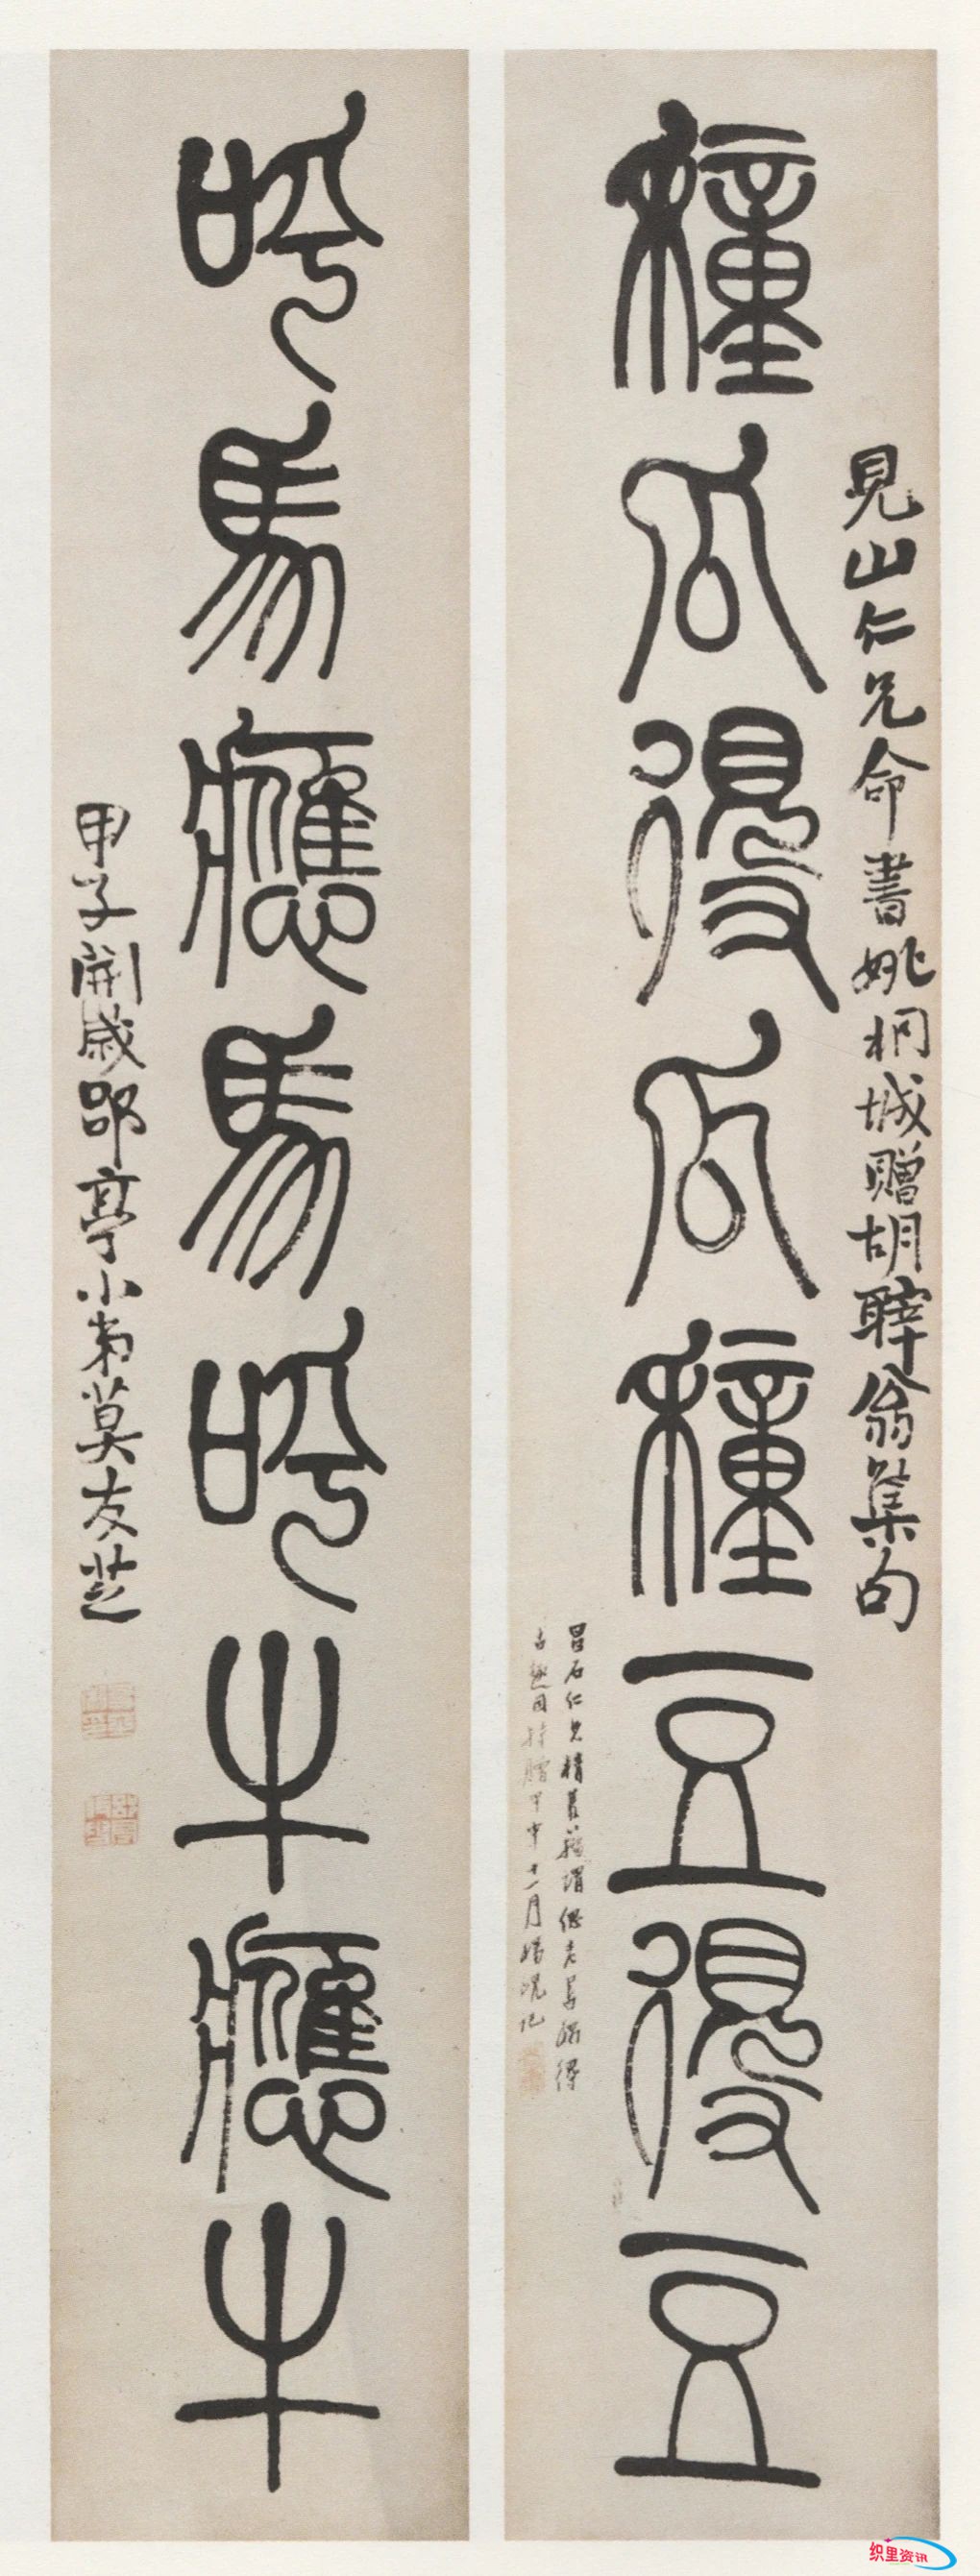 見山仁兄命書姚桐城贈胡䏁翁集句
種瓜得瓜種豆得豆
昌石仁兄精篆籀謂偲老篆得
古趣因持贈甲申十一月記
呼馬應馬呼牛應牛
甲子開歲郘亭小弟莫友芝
织里资讯